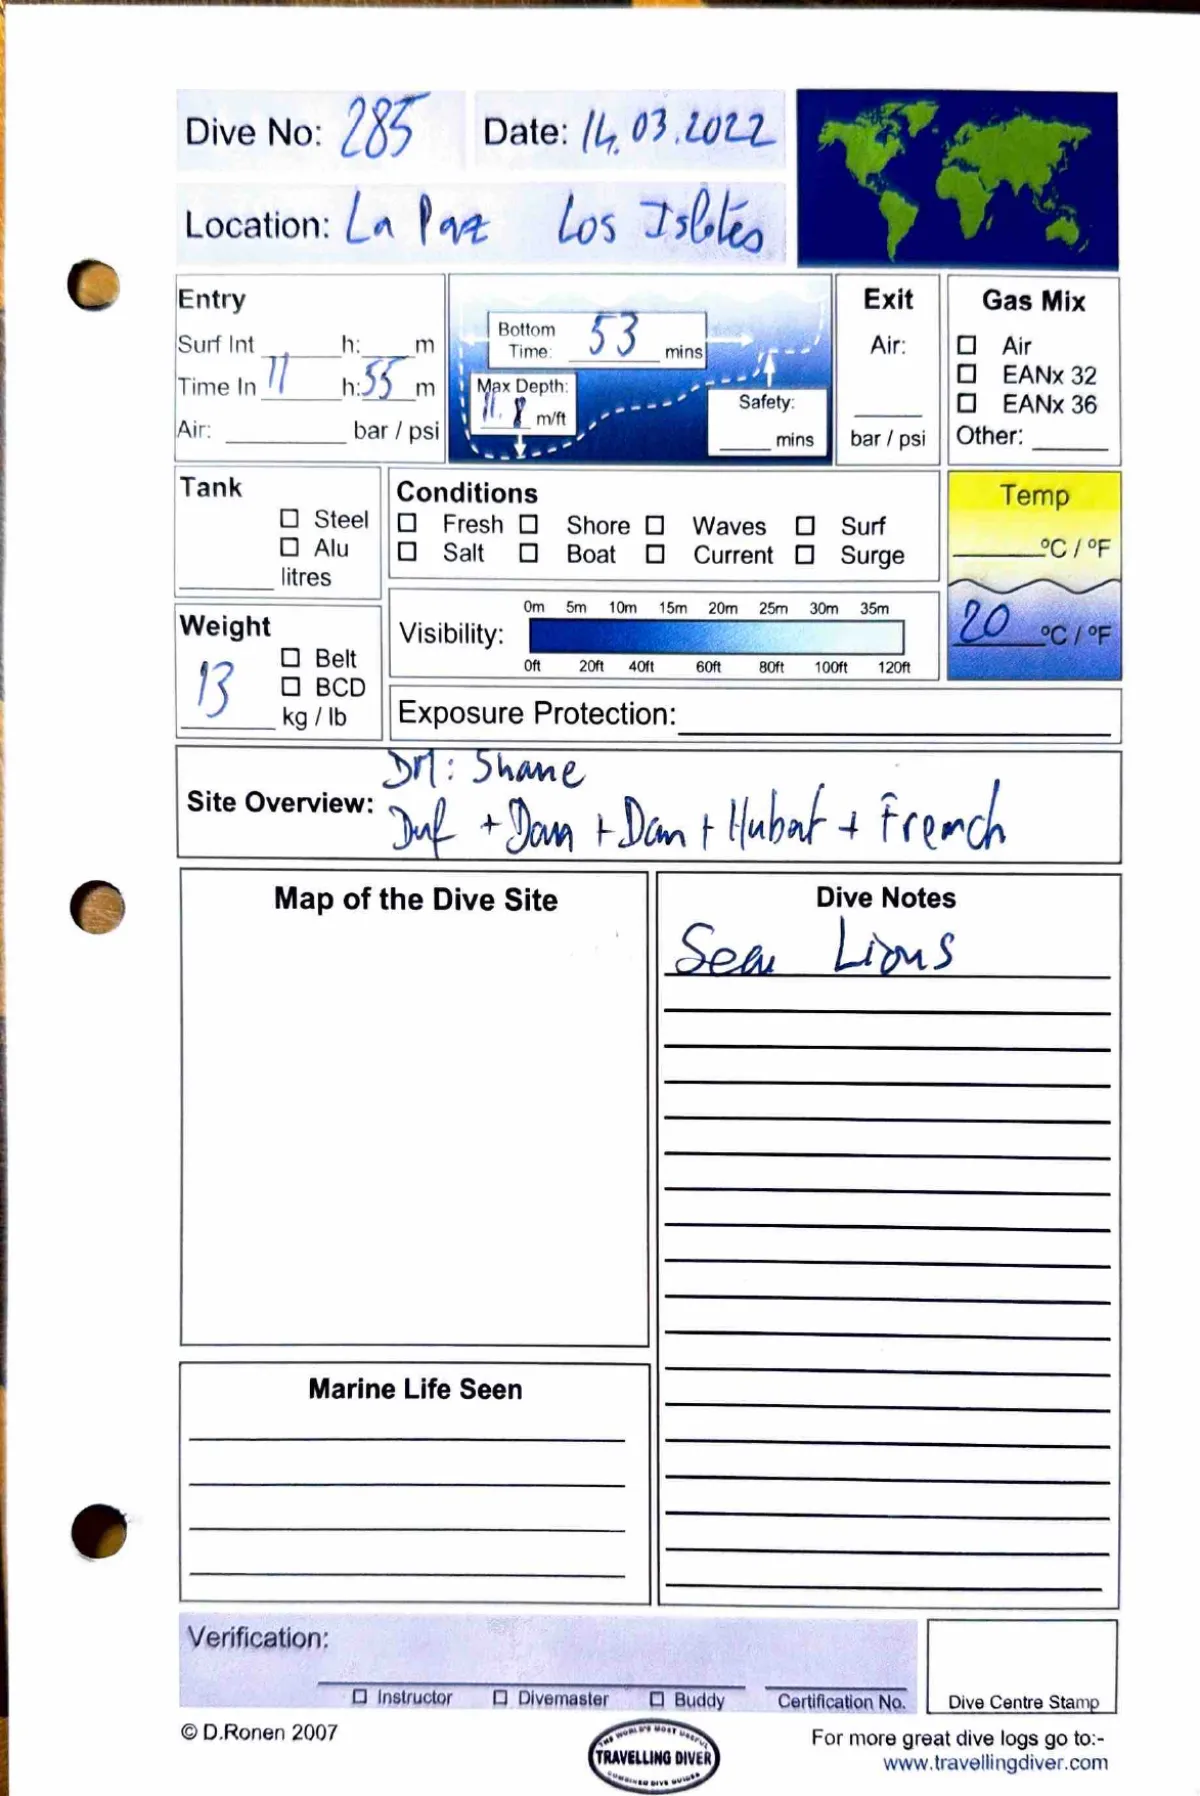 Dive No: 285
Date: 14.03.2022
Location: La Paz Los Islotes
Entry
Surf Int ____ h: ____ m
Time In 11 h: 55 m
Air: ____ bar / psi
Bottom Time: 53 mins
Max Depth: 11.8 m/ft
Safety: ____ mins
Exit
Air:
____
bar / psi
Gas Mix
☐ Air
☐ EANx 32
☐ EANx 36
Other: ____
Tank
☐ Steel
☐ Alu
____ litres
Conditions
☐ Fresh ☐ Shore ☐ Waves ☐ Surf
☐ Salt ☐ Boat ☐ Current ☐ Surge
Temp
____ ºC / ºF
20 ºC / ºF
Weight
☐ Belt
☐ BCD
13 kg / lb
0m 5m 10m 15m 20m 25m 30m 35m
Visibility:
0ft 20ft 40ft 60ft 80ft 100ft 120ft
Exposure Protection: ____
DM: Shane
Site Overview:
+ Dan + Dan + Hubert + French
Map of the Dive Site
Dive Notes
Sea Lions
Marine Life Seen
Verification:
☐ Instructor ☐ Divemaster ☐ Buddy
Certification No.
Dive Centre Stamp
© D.Ronen 2007
THE WORLD'S MOST USEFUL
TRAVELLING DIVER
COMBINED DIVE GUIDES
For more great dive logs go to:-
www.travellingdiver.com